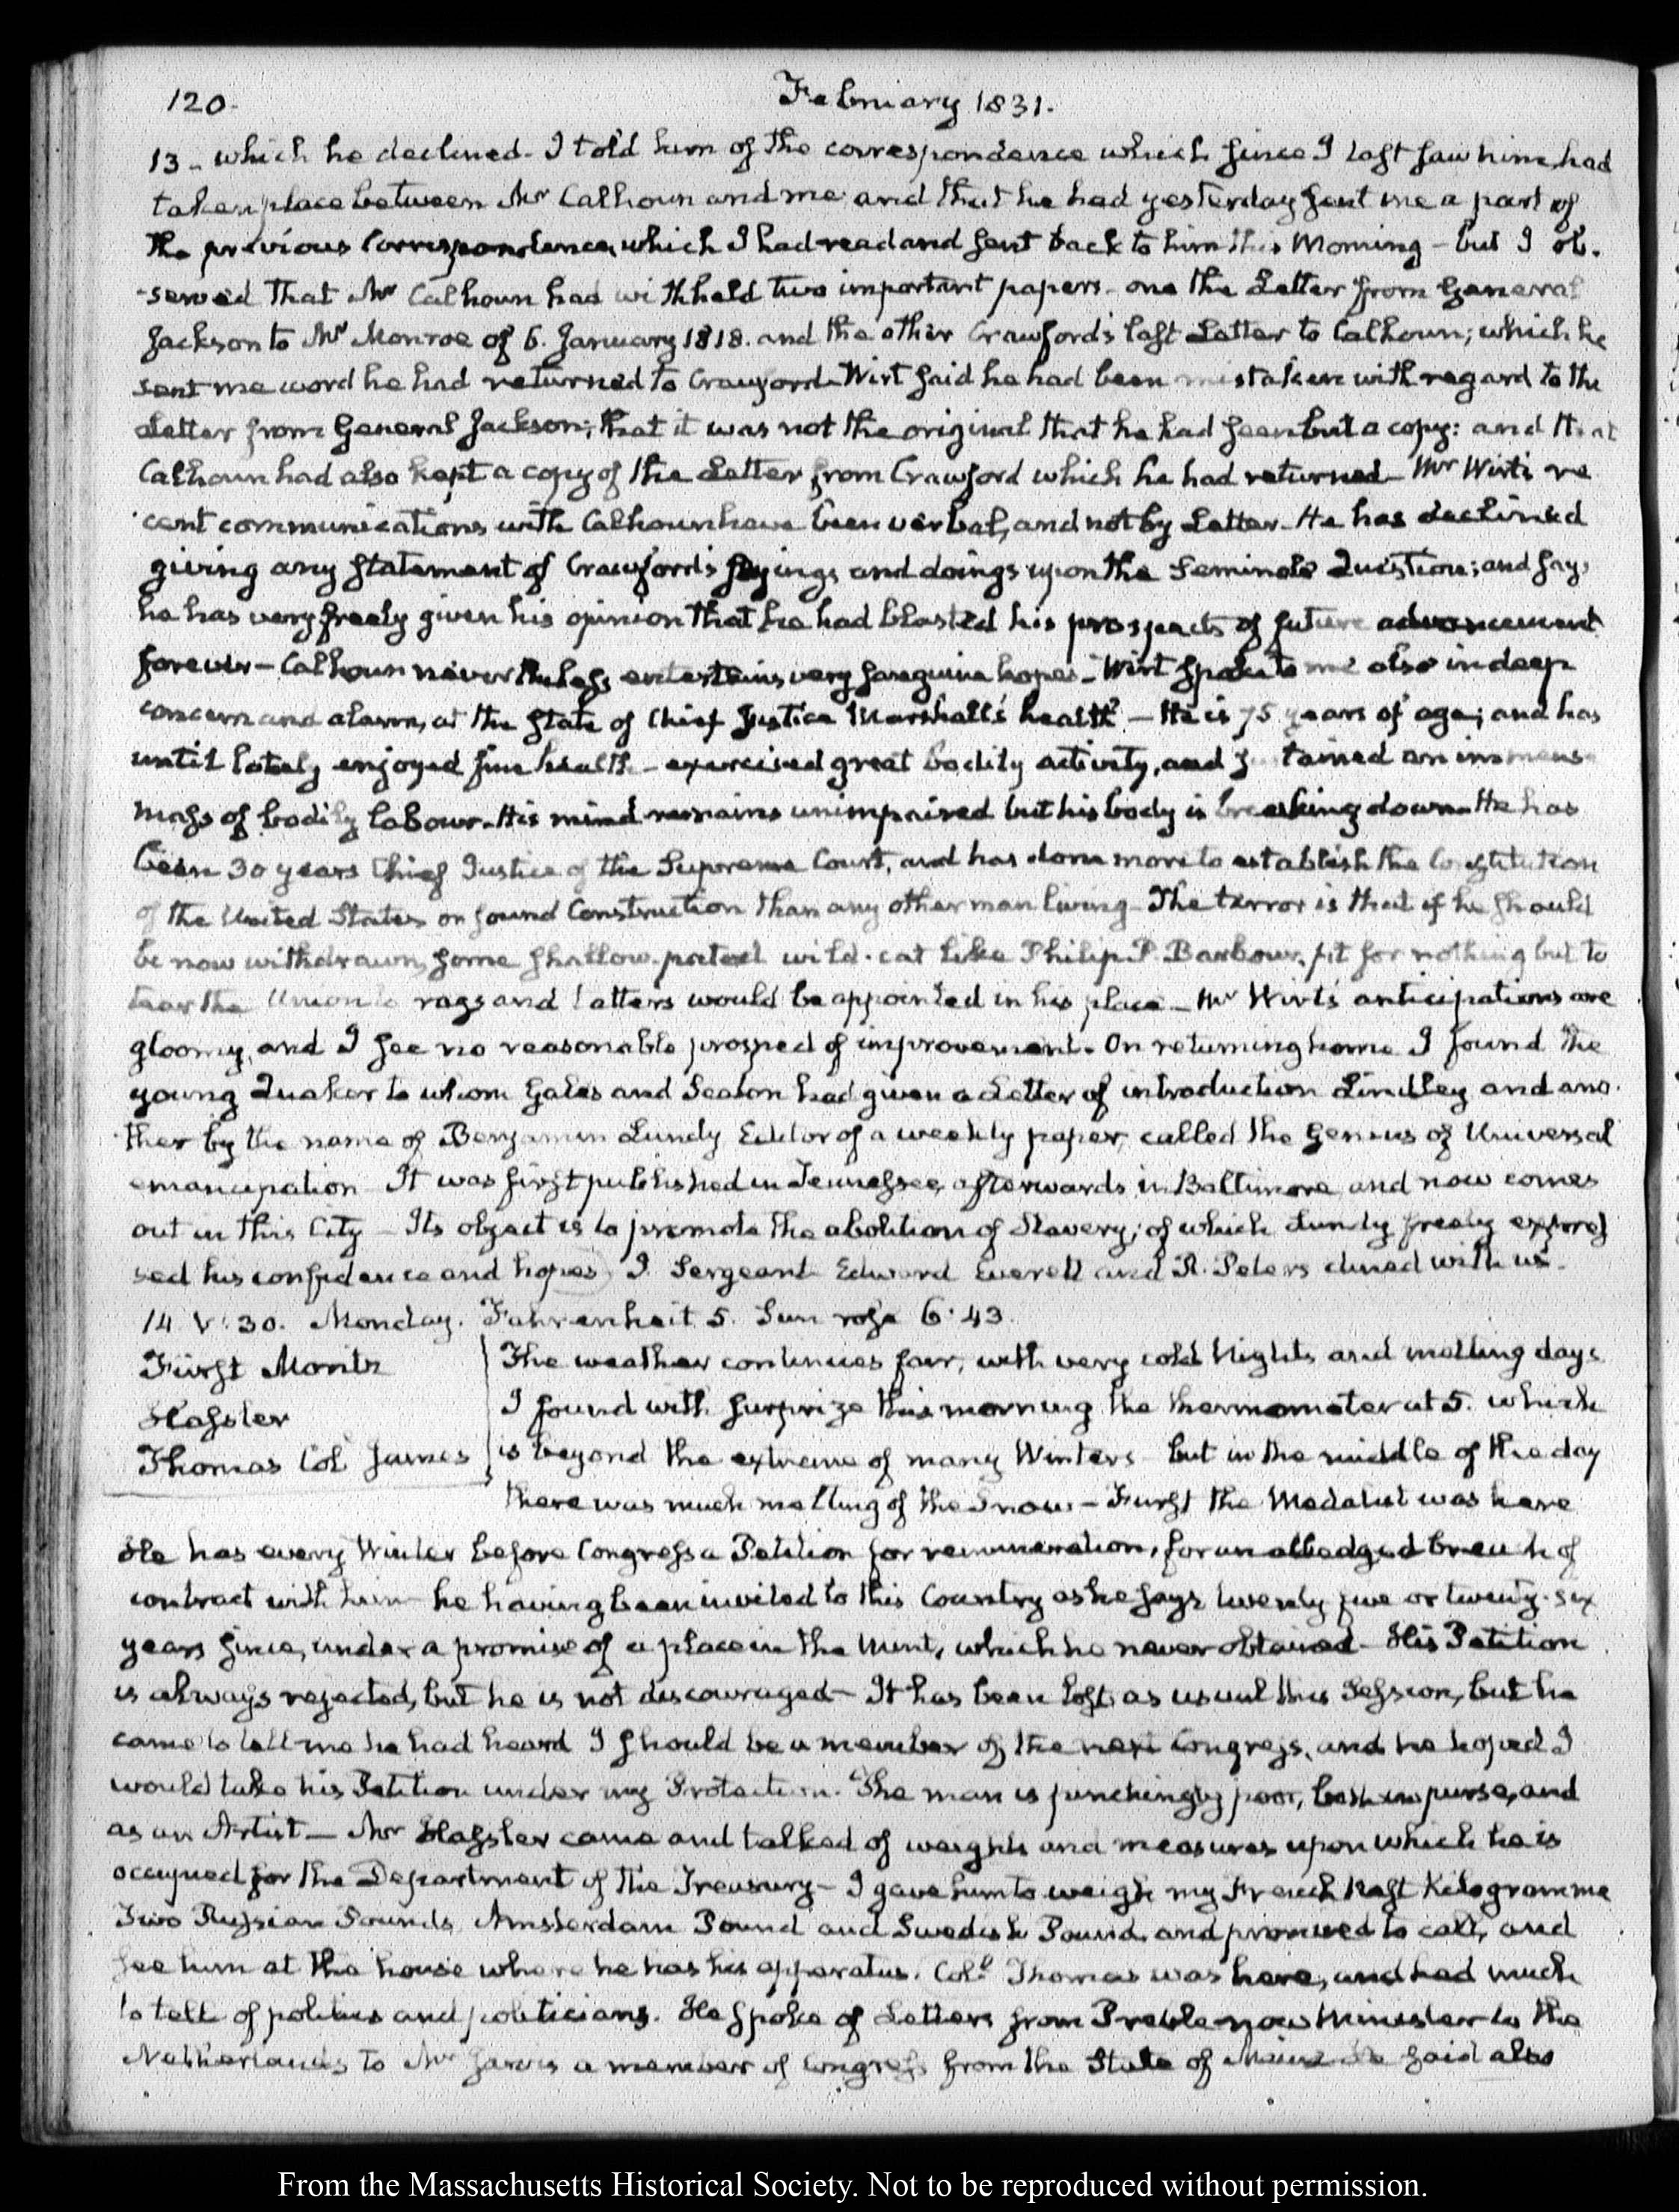 120.
February 1831.
13 - which he declined. I told him of the correspondence which since I last saw him, had
taken place between Mr Calhoun and me and that he had yesterday sent me a part of
the previous Correspondence, which I had read and sent back to him this Morning - but I ob-
-served that Mr Calhoun had withheld two important papers - one the Letter from General
Jackson to Mr Monroe of 6. January 1818. and the other Crawford's last Letter to Calhoun; which he
sent me word he had returned to Crawford. Wirt said he had been mistaken with regard to the
Letter from General Jackson; that it was not the original that he had seen but a copy: and that
Calhoun had also kept a copy of the Letter from Crawford which he had returned - Mr Wirt's re
cent communications with Calhoun have been verbal, and not by Letter - He has declined
giving any statement of Crawford's sayings and doings upon the Seminole Question; and says
he has very freely given his opinion that he had blasted his prospects of future advancement
forever - Calhoun nevertheless entertains very sanguine hopes - Wirt spoke to me also in deep
concern and alarm, at the state of Chief Justice Marshall's health - He is 75 years of age; and has
until lately enjoyed fine health - exercised great bodily activity, and sustained an immense
mass of bodily labour. His mind remains unimpaired but his body is breaking down - He has
been 30 years Chief Justice of the Supreme Court, and has done more to establish the Constitution
of the United States on sound Construction than any other man living - The terror is that if he should
be now withdrawn, some shallow-pated wild-cat like Philip P. Barbour, fit for nothing but to
tear the Union to rags and tatters would be appointed in his place - Mr Wirt's anticipations are
gloomy, and I see no reasonable prospect of improvement - On returning home I found the
young Quaker to whom Gales and Seaton had given a Letter of introduction Lindley and ano-
-ther by the name of Benjamin Lundy Editor of a weekly paper, called the Genius of Universal
emancipation It was first published in Tennessee, afterwards in Baltimore, and now comes
out in this City - Its object is to promote the abolition of Slavery; of which Lundy freely expres
sed his confidence and hopes J. Sergeant Edward Everett and R. Peters dined with us -
14. V:30. Monday. Fahrenheit 5. Sun rose 6:43.
Fürst Moritz
Hassler
Thomas Col James
The weather continues fair, with very cold Nights and melting days
I found with surprize this morning the thermometer at 5. which
is beyond the extreme of many Winters but in the middle of the day
there was much melting of the Snow - Furst the Medalist was here
He has every Winter before Congress a Petition for remuneration, for an alledged breach of
contract with him - he having been invited to this Country as he says twenty five or twenty-six
years since, under a promise of a place in the Mint, which he never obtained - His Petition
is always rejected, but he is not discouraged - It has been lost as usual this Session, but he
came to tell me he had heard I should be a member of the next Congress, and he hoped I
would take his Petition under my Protection. The man is pinchingly poor, both in purse, and
as an Artist - Mr Hassler came and talked of weights and measures upon which he is
occupied for the Department of the Treasury - I gave him to weigh my French Kilogramme
Two Russian Pounds, Amsterdam Pound and Swedish Pound, and promised to call, and
see him at the house where he has his apparatus. Coll Thomas was here, and had much
to tell of politics and politicians. He spoke of Letters from Preble now Minister to the
Netherlands to Mr Jarvis a member of Congress from the State of Maine He said also
From the Massachusetts Historical Society. Not to be reproduced without permission.